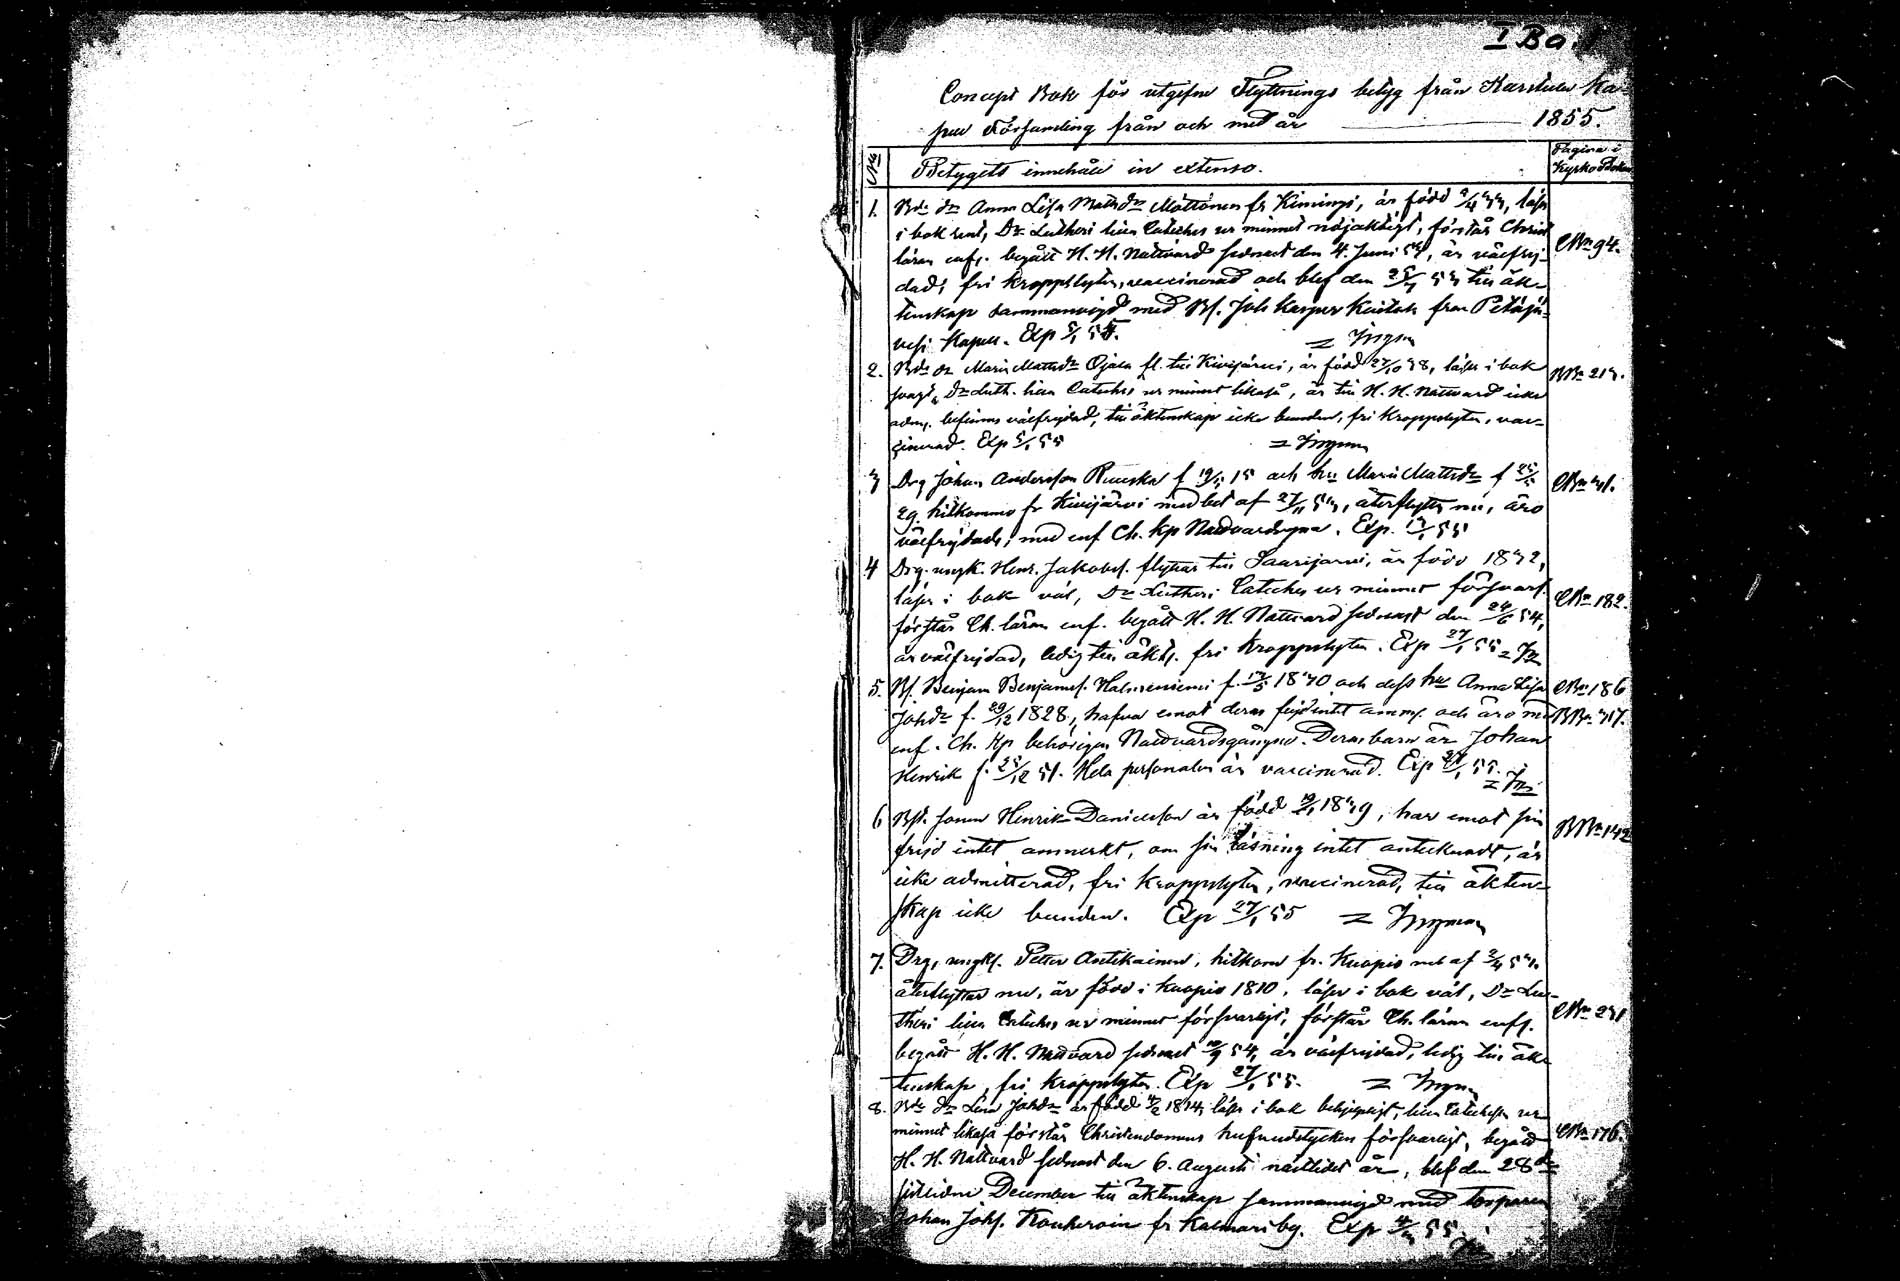 I Ba. 1
Concept Bok för utgifne Flyttnings betyg från Karstula Ka-
pell Församling från och med år 1855.
No Betygets innehåll in extenso. Pagina i
Kyrko Boken
1. Bde dr Anna Lisa Mattsdr Möttönen fr Kimingi, är född läser
i bok rent, Dr Lutheri lilla Cateches ur minnet nöjaktigt, förstår Christ
läran enf. begått H. H. Nattvard sednast den 4. Juni 54, är välfrej- CBn 94.
dad, fri kroppslyten, vaccinerad och blef den till äk-
tenskap sammanvigd med Bs. Joh Kasper från Petäjä-
vesi Kapell. Exp 5/1 55. Ingm
2. Bde dr Maria Mattsdr Ojala fl. till Kivijärvi, är född 27/10 38, läser i bok BBn 213.
svagt, Dr Luth. lilla Cateches ur minnet likaså, är till H. H. Nattvard icke
adm. befinnes välfrejdad, till äktenskap icke bunden, fri kroppslyten, vac-
cinerad. Exp 5/1 55 Ingman
3 Drg Johan Andersson Ruuska f 19/11 15 och hu Maria Mattsdr f 25/5 CBn 41.
29 hitkommo fr Kivijärvi med bet af 27/11 53, återflytta nu, äro
välfrejdade, med enf Ch. kp Nattvardsgna. Exp. 55
4 Drg. ungk. Henr. Jakobss. flyttar till Saarijärvi, är född 1832,
läser i bok väl, Dr Lutheri Cateches ur minnet försvarl. CBn 182.
förstår Ch. läran enf. begått H. H. Nattvard sednast den 24/6 54,
är välfrejdad, ledig till äkts. fri kroppslyten. Exp 27/1 55
5. Bs. Benjam Benjamss. f. 18 30 och dess hu Anna Lisa CBn 186
Johdr f. 29/12 1828, hafva emot deras frejd intet anm. och äro med BBn 317.
enf. Ch. Kp behörigen Nattvardsgångne. Deras barn är Johan
Henrik f. 25/12 51. Hela personalen är vaccinerad. Exp 27/1 55.
6 Bss. Johan Henrik Danielsson är född 1839, har emot sin BBn 142
frejd intet anmerkt, om sin läsning intet antecknadt, är
icke admitterad, fri kroppslyten, vaccinerad, till äkten-
skap icke bunden. Exp 27/1 55 Ingman
7. Drg, ungks. Petter Antikainen, hitkom fr. Kuopio med af
återflyttar nu, är född i Kuopio 1810, läser i bok väl, Dr Lu-
theri lilla Cateches ur minnet försvarligt, förstår Ch. läran enff. CBn 231
begått H. H. Nattvard sednast 54, är välfrejdad, ledig till äk-
tenskap, fri kroppslyten. Exp 27/1 55. Ingm
8. Bde dr Lena Johdr är född 1834, läser i bok behjelpligt, lilla Catechesen ur
minnet likaså förstår Christendomens hufvudstycken försvarligt, begått CBn 176.
H. H. Nattvard sednast den 6. Augusti nästlidet år, blef den 28de
sistlidne December till äktenskap sammanvigd med Torparen
Johan Johs. fr Kalmari by. Exp 55